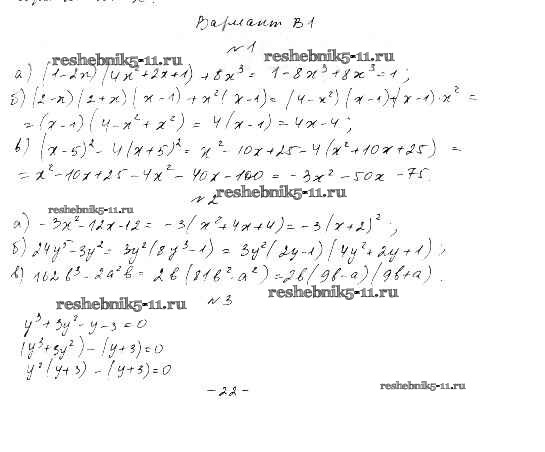 Вариант В1
№1
reshebnik5-11.ru reshebnik5-11.ru
а) (1-2x)(4x²+2x+1)+8x³=1-8x³+8x³=1;
б) (2-x)(2+x)(x-1)+x²(x-1)=(4-x²)(x-1)+(x-1)·x²=
=(x-1)(4-x²+x²)=4(x-1)=4x-4;
в) (x-5)²-4(x+5)²=x²-10x+25-4(x²+10x+25)=
=x²-10x+25-4x²-40x-100=-3x²-50x-75.
№2
reshebnik5-11.ru
reshebnik5-11.ru
а) -3x²-12x-12=-3(x²+4x+4)=-3(x+2)²;
б) 24y⁵-3y²=3y²(8y³-1)=3y²(2y-1)(4y²+2y+1);
в) 162b³-2a²b=2b(81b²-a²)=2b(9b-a)(9b+a).
reshebnik5-11.ru
reshebnik5-11.ru
№3
y³+3y²-y-3=0
(y³+3y²)-(y+3)=0
y²(y+3)-(y+3)=0
-22-
reshebnik5-11.ru